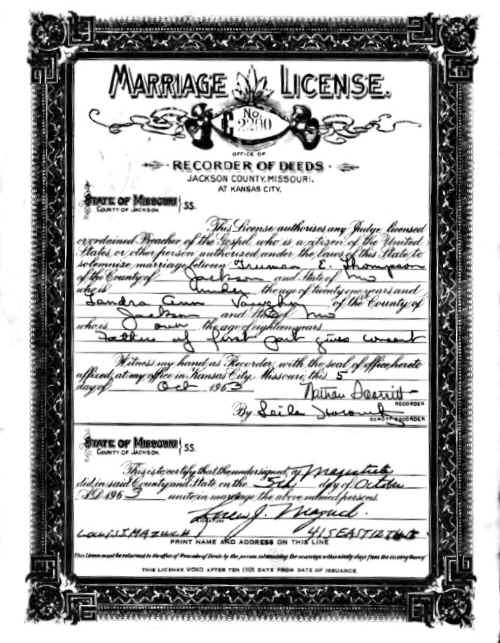 MARRIAGE LICENSE.
No.
2200
OFFICE OF
RECORDER OF DEEDS
JACKSON COUNTY, MISSOURI.
AT KANSAS CITY.
STATE OF MISSOURI
COUNTY OF JACKSON } SS.
This License authorises any Judge, licensed
or ordained Preacher of the Gospel, who is a citizen of the United
States, or other person authorized under the laws of this State to
solemnize marriage, between Truman E. Thompson
of the County of Jackson and State of Mo
who is under the age of twenty one years and
Sandra Ann of the County of
Jackson and State of Mo
who is over the age of eighteen years
Father of first part gives consent
Witness my hand as Recorder, with the seal of office, hereto
affixed, at my office in Kansas City, Missouri, this 5
day of Oct 1963 Nathan
RECORDER
By Leila
DEPUTY RECORDER
STATE OF MISSOURI
COUNTY OF JACKSON } SS.
This is to certify that the undersigned, a Magistrate
did, in said County and State on the 5th day of October
A.D. 1963 unite in marriage the above named persons.
Louis J. Mazuch
SIGNATURE
LOUIS J. MAZUCH 415 EAST 12TH
PRINT NAME AND ADDRESS ON THIS LINE
This License must be returned to the office of Recorder of Deeds by the person solemnizing the marriage within ninety days from the issuing thereof
THIS LICENSE VOID AFTER TEN (10) DAYS FROM DATE OF ISSUANCE.